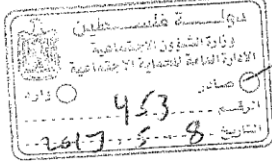 دولـــة فلســـطين
وزارة الشؤون الاجتماعية
الادارة العامة للحماية الاجتماعية
صادر وارد
الرقم 453
التاريخ 8-5-2017